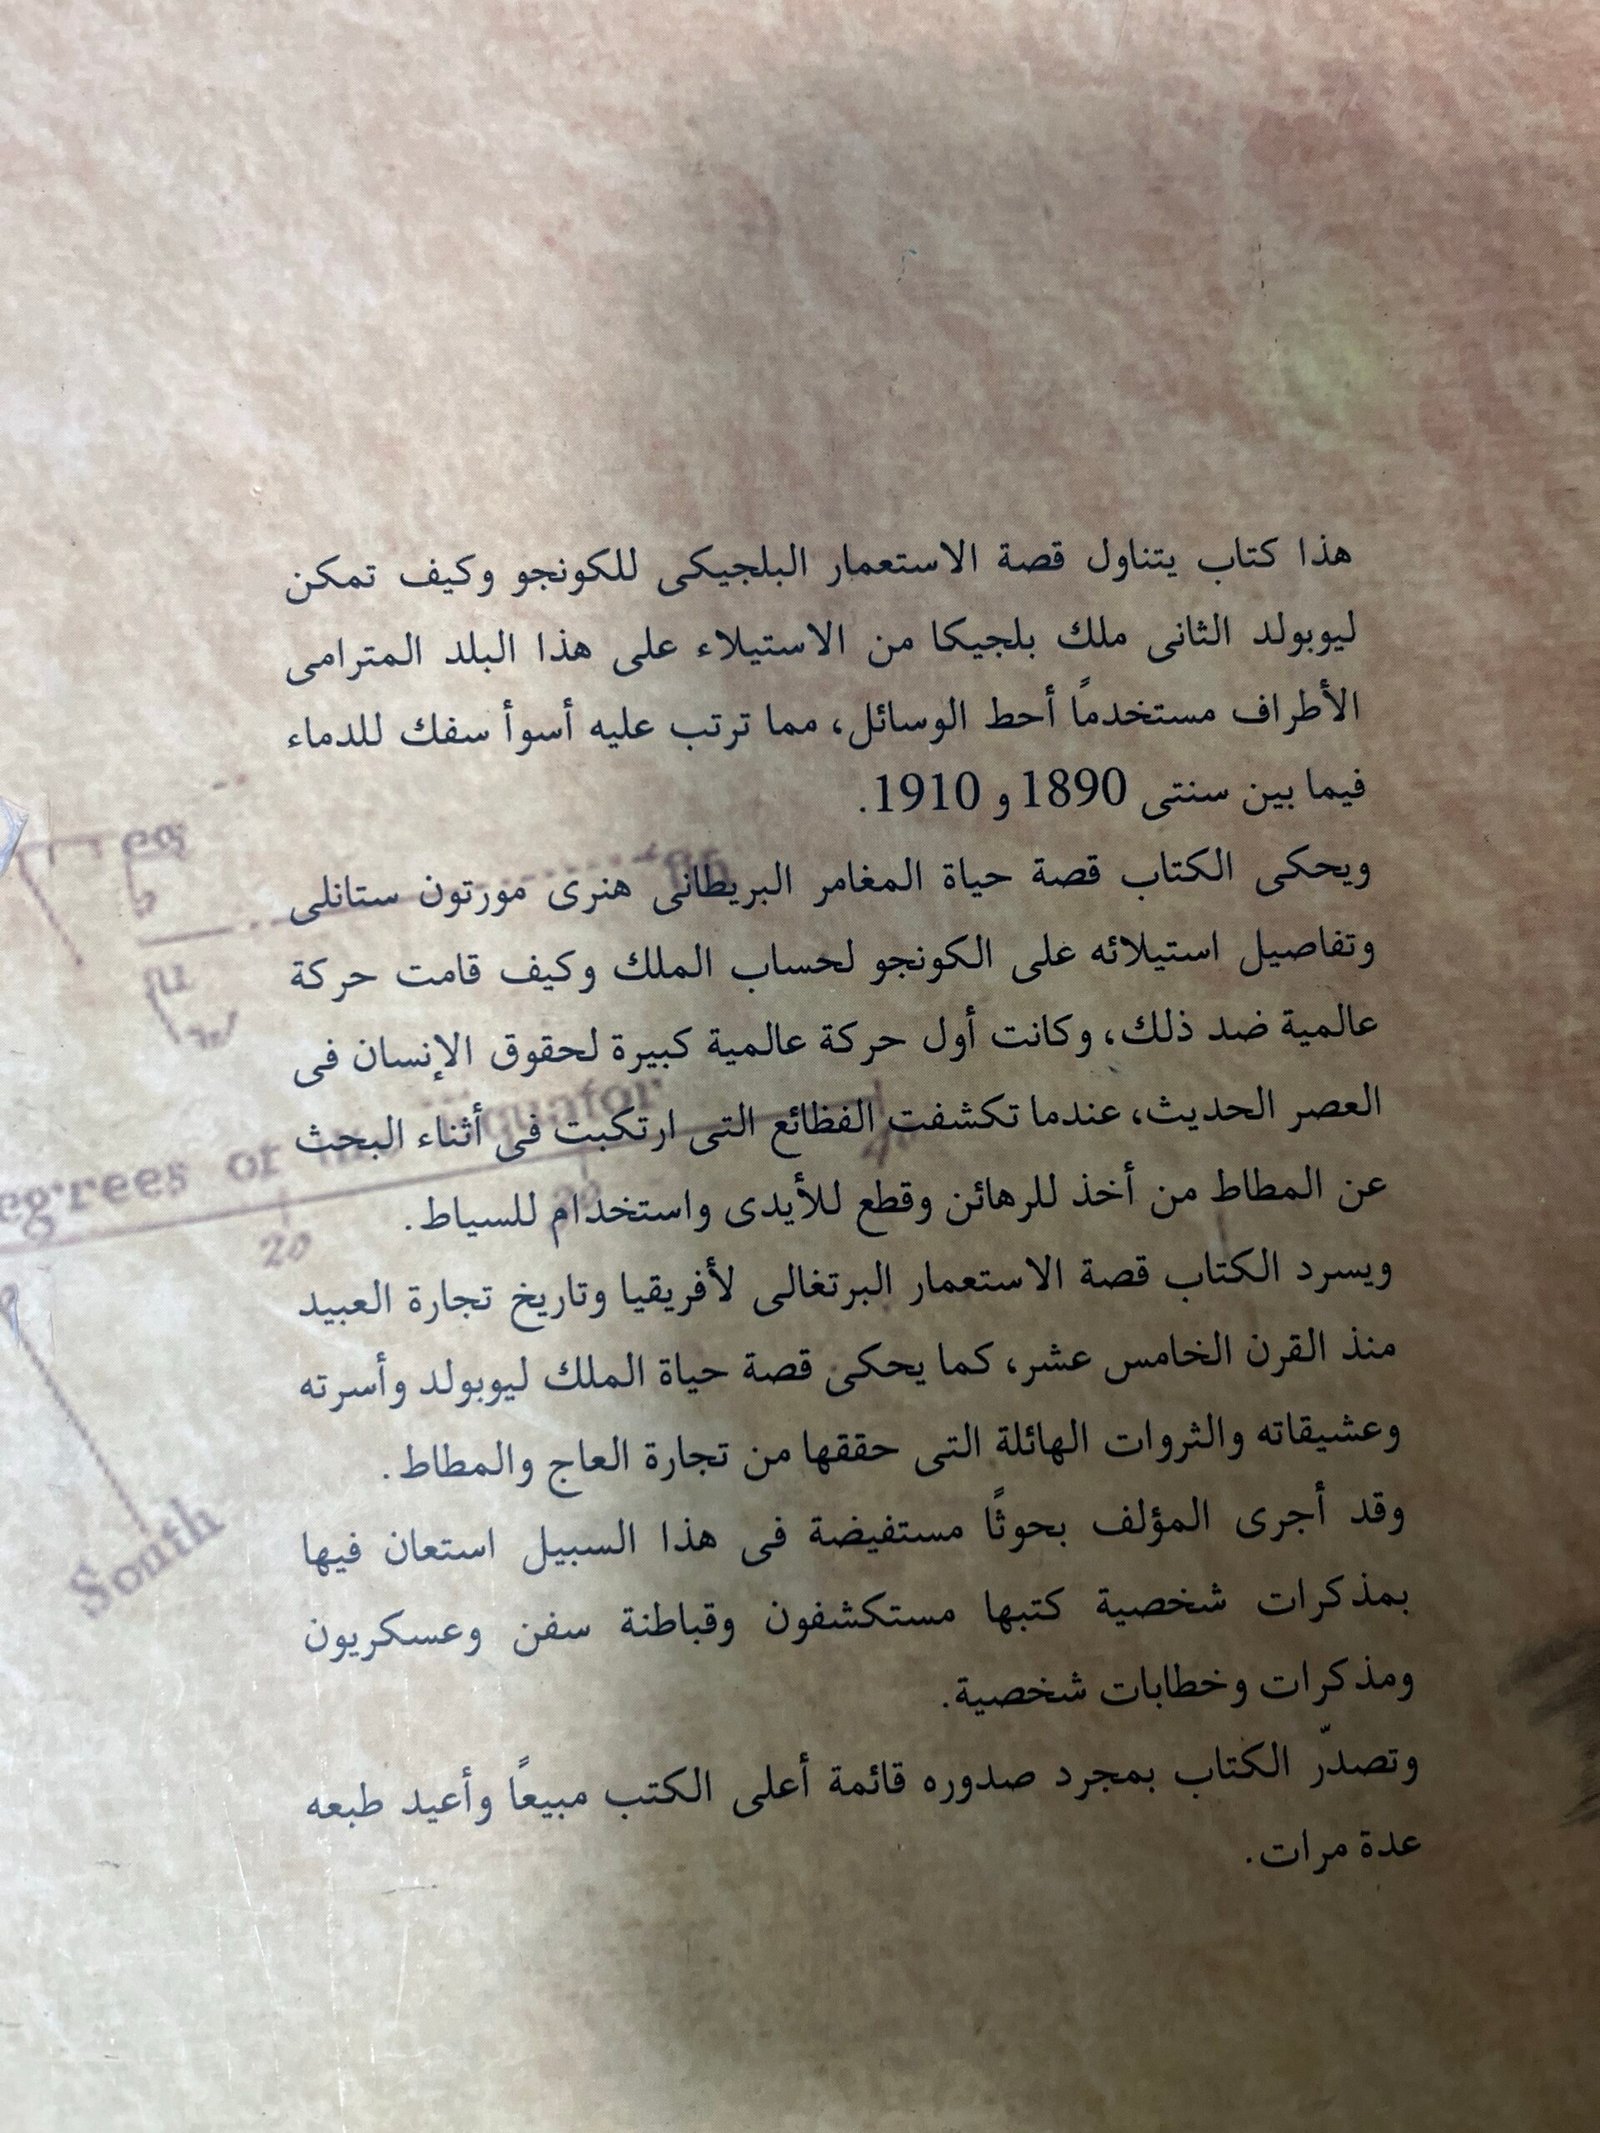 هذا كتاب يتناول قصة الاستعمار البلجيكى للكونجو وكيف تمكن
ليوبولد الثانى ملك بلجيكا من الاستيلاء على هذا البلد المترامى
الأطراف مستخدمًا أحط الوسائل، مما ترتب عليه أسوأ سفك للدماء
فيما بين سنتى 1890 و 1910.
ويحكى الكتاب قصة حياة المغامر البريطانى هنرى مورتون ستانلى
وتفاصيل استيلائه على الكونجو لحساب الملك وكيف قامت حركة
عالمية ضد ذلك، وكانت أول حركة عالمية كبيرة لحقوق الإنسان فى
العصر الحديث، عندما تكشفت الفظائع التى ارتكبت فى أثناء البحث
عن المطاط من أخذ للرهائن وقطع للأيدى واستخدام للسياط.
ويسرد الكتاب قصة الاستعمار البرتغالى لأفريقيا وتاريخ تجارة العبيد
منذ القرن الخامس عشر، كما يحكى قصة حياة الملك ليوبولد وأسرته
وعشيقاته والثروات الهائلة التى حققها من تجارة العاج والمطاط.
وقد أجرى المؤلف بحوثًا مستفيضة فى هذا السبيل استعان فيها
بمذكرات شخصية كتبها مستكشفون وقباطنة سفن وعسكريون
ومذكرات وخطابات شخصية.
وتصدّر الكتاب بمجرد صدوره قائمة أعلى الكتب مبيعًا وأعيد طبعه
عدة مرات.
egrees of
20
South